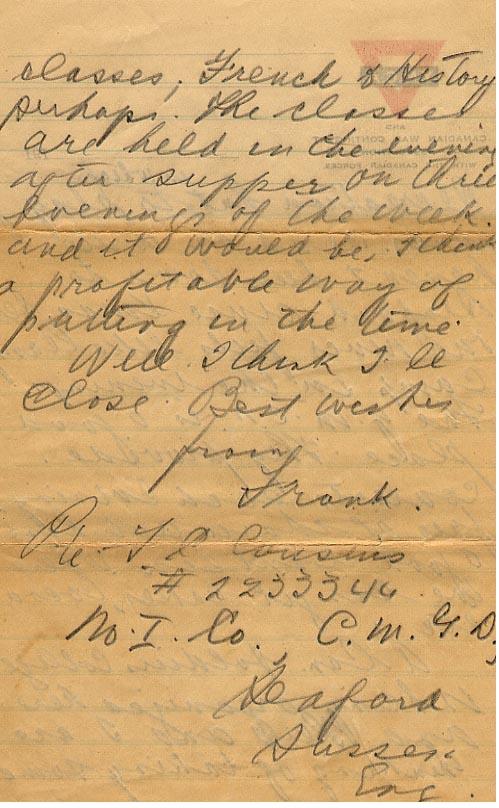 classes, French & History
perhaps. The classes
are held in the evening
after supper on three
evenings of the week
and it would be, I think
a profitable way of
putting in the time.
Well I think I'll
close. Best wishes
from
Frank.
Pte. F. D Cousins
# 2233344
No. I. Co. C. M. G. D,
Seaford
Sussex.
Eng.